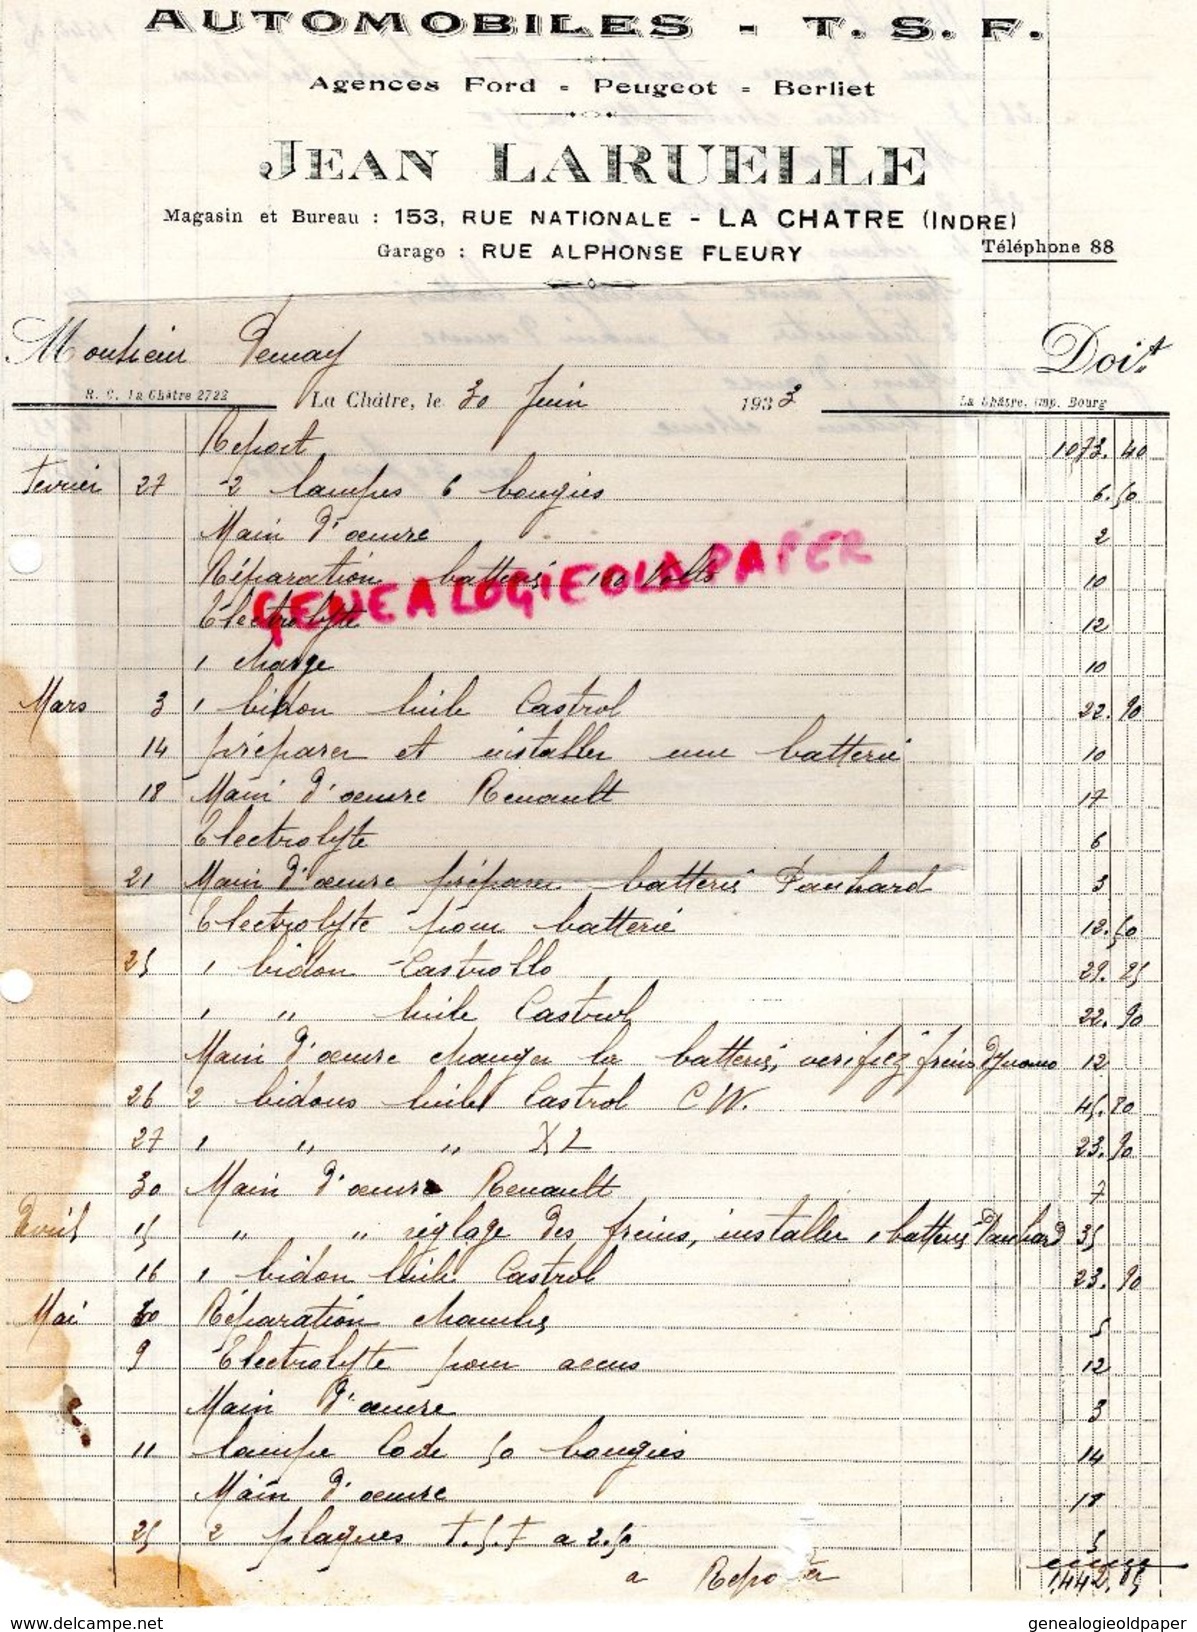 AUTOMOBILES - T. S. F.
Agences Ford - Peugeot - Berliet
JEAN LARUELLE
Magasin et Bureau : 153, RUE NATIONALE - LA CHATRE (INDRE)
Garage : RUE ALPHONSE FLEURY
Téléphone 88
Monsieur Demay Doit
R. C. La Châtre 2722 La Châtre, le 30 Juin 1933 La Châtre. Imp. Bourg
Report 1073. 40
Fevrier 27 2 lampes 6 bougies 6. 50
Main d'oeuvre 2
Réparation batterie 100 Volts 10
Electrolyte 12
1 charge 10
Mars 3 1 bidon huile Castrol 22. 90
14 préparer et installer une batterie 10
18 Main d'oeuvre Renault 17
Electrolyte 6
21 Main d'oeuvre préparer batterie Panhard 3
Electrolyte pour batterie 12. 50
25 1 bidon Castrollo 29. 25
1 " huile Castrol 22. 90
Main d'oeuvre changer la batterie, verifiez freins 12
26 2 bidons huile Castrol C W. 45. 80
27 1 " " XL 23. 90
30 Main d'oeuvre Renault 7
Avril 15 " " réglage des freins, installer 1 batterie Panhard 35
16 1 bidon huile Castrol 23. 90
Mai Réparation chambre 5
9 Electrolyte pour accus 12
Main d'oeuvre 3
11 lampe Code 50 bougies 14
Main d'oeuvre 18
25 2 plaques T.S.F a 2.50 5
a Reporter 1442. 85
GENEALOGIEOLDPAPER
delcampe.net genealogieoldpaper